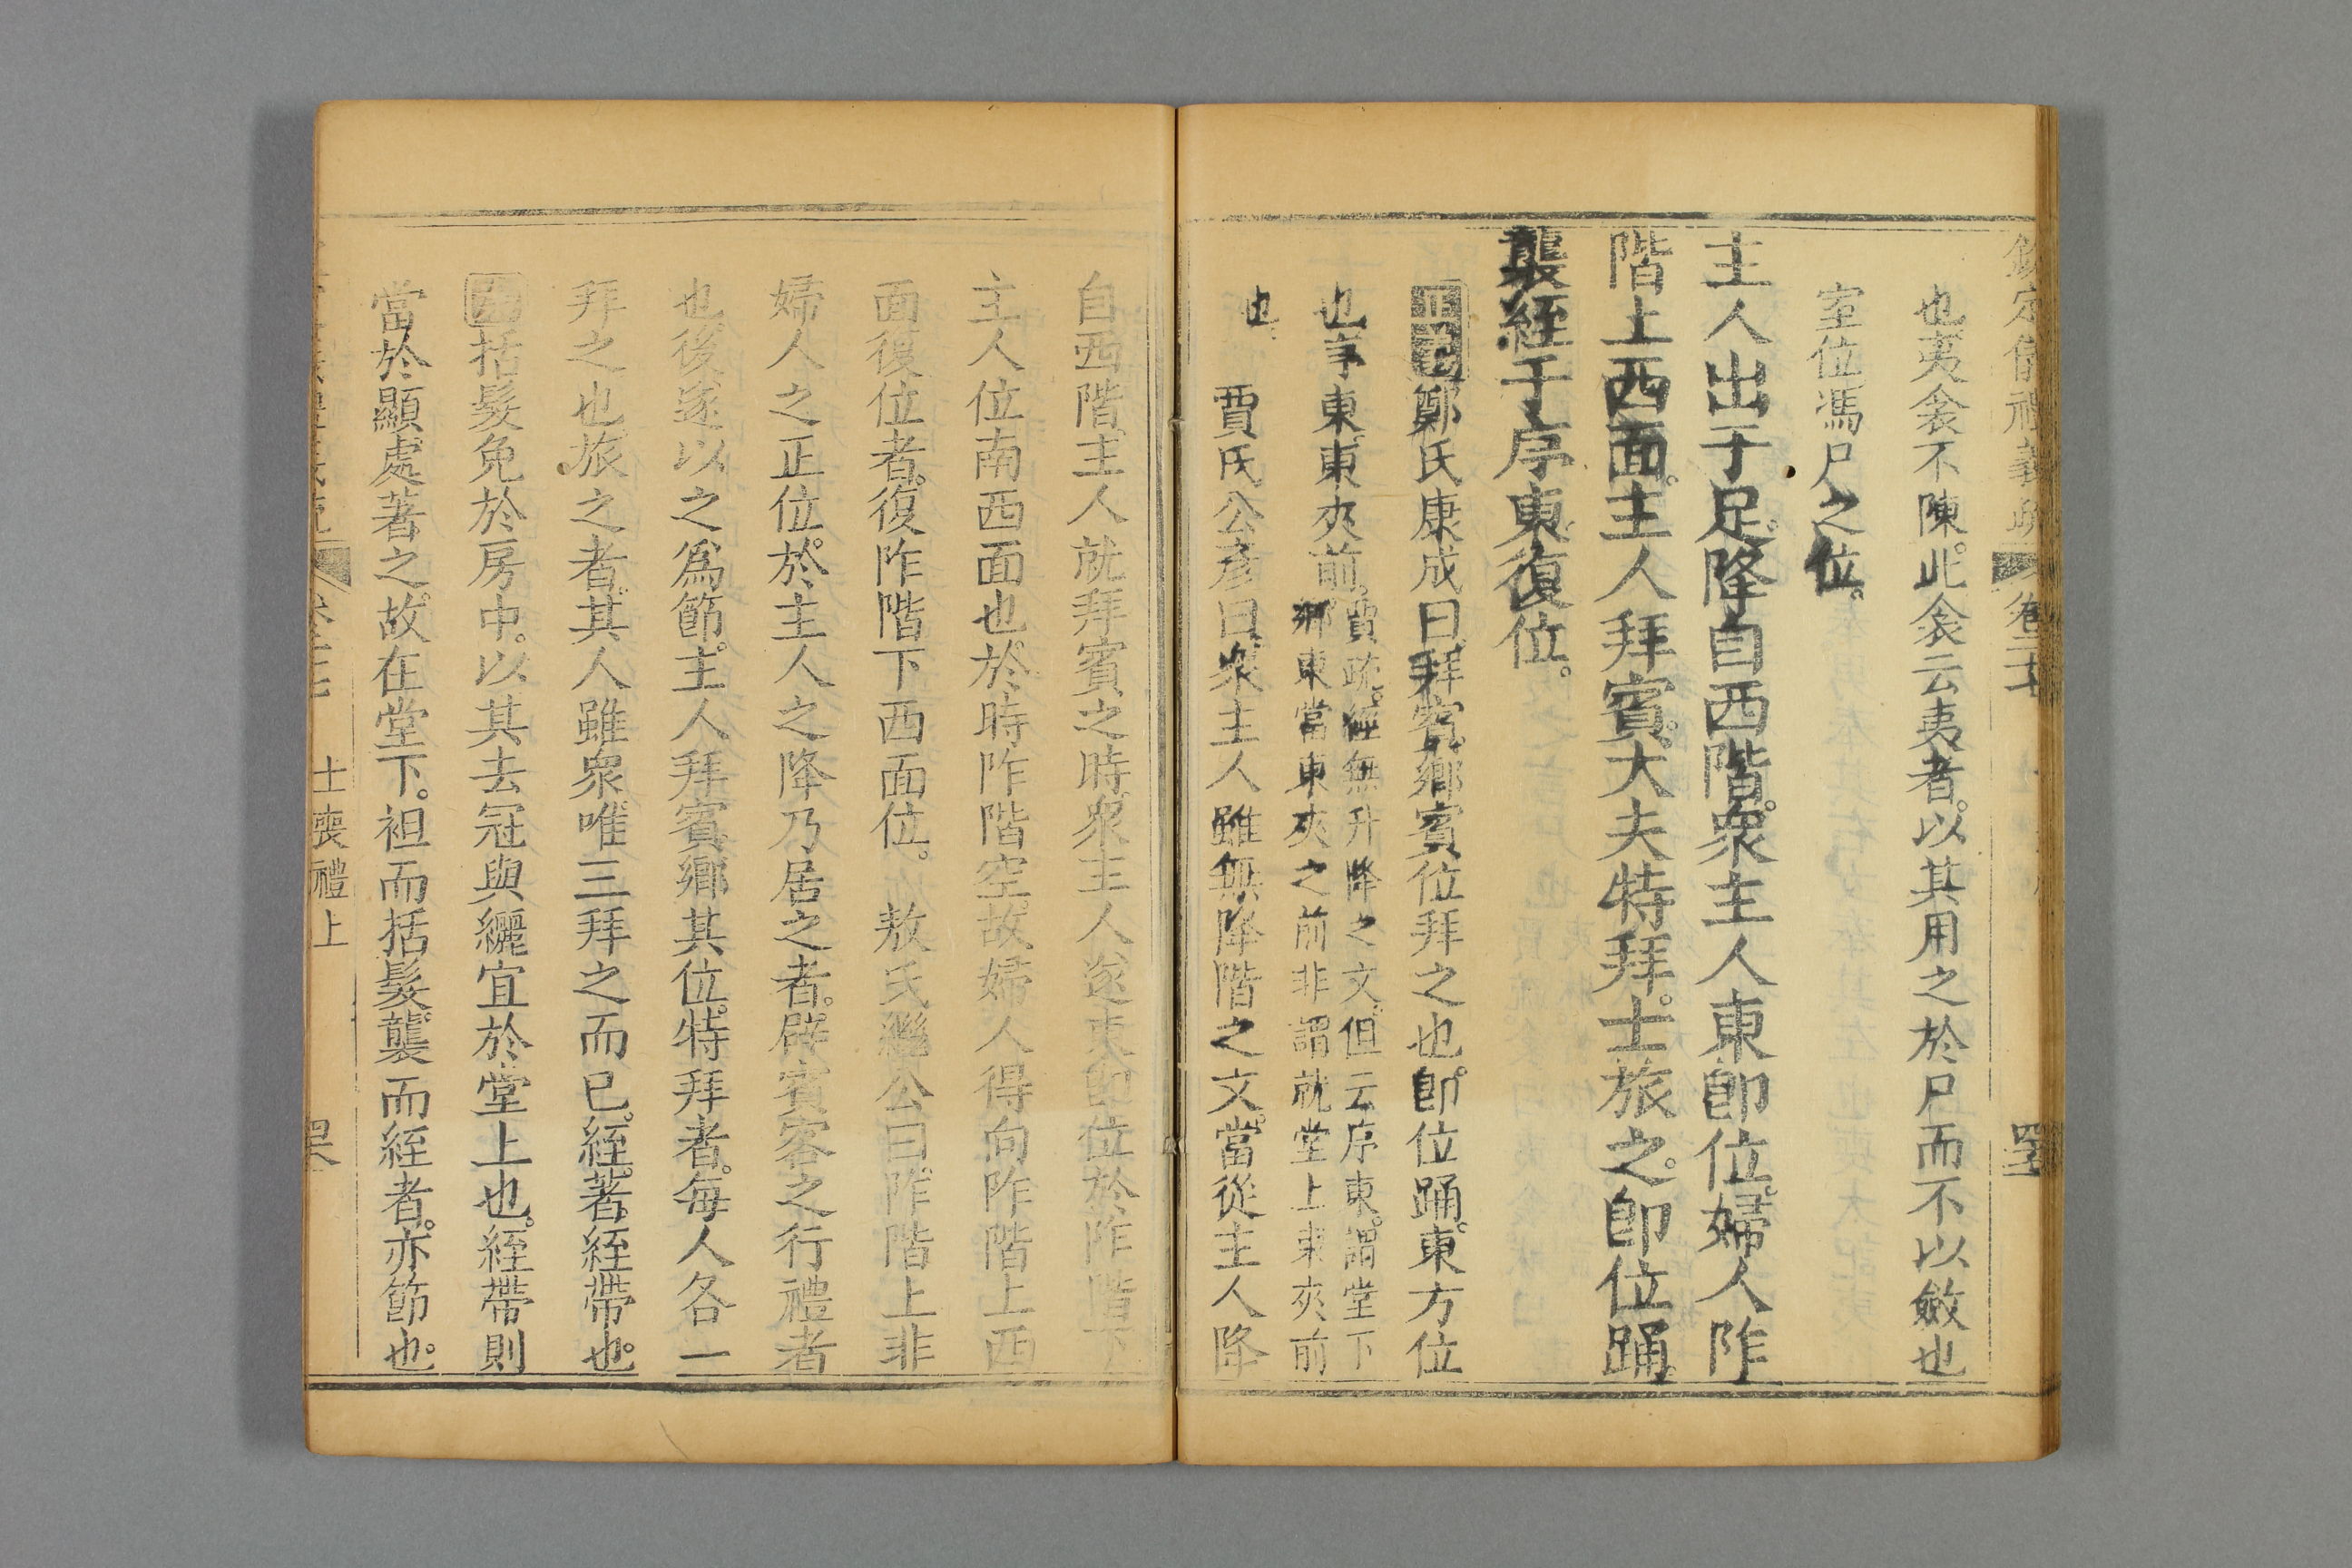 欽定儀禮義疏 卷二十
也夷衾不陳此衾云夷者以其用之於尸而不以斂也
室位馮尸之位
主人出于足降自西階衆主人東卽位婦人阼
階上西面主人拜賓大夫特拜士旅之卽位踊
襲絰于序東復位
正義鄭氏康成曰拜賓鄉賓位拜之也卽位踊東方位
也序東東夾前
賈疏經無升降之文但云序東謂堂下
鄉東當東夾之前非謂就堂上東夾前
也
賈氏公彥曰衆主人雖無降階之文當從主人降
自西階主人就拜賓之時衆主人遂東卽位於阼階下
主人位南西面也於時阼階空故婦人得向阼階上西
面復位者復阼階下西面位 敖氏繼公曰阼階上非
婦人之正位於主人之降乃居之者辟賓客之行禮者
也後遂以之爲節主人拜賓鄉其位特拜者每人各一
拜之也旅之者其人雖衆唯三拜之而已絰著絰帶也
括髮免於房中以其去冠與纚宜於堂上也絰帶則
當於顯處著之故在堂下袒而括髮襲而絰者亦節也
士喪禮上